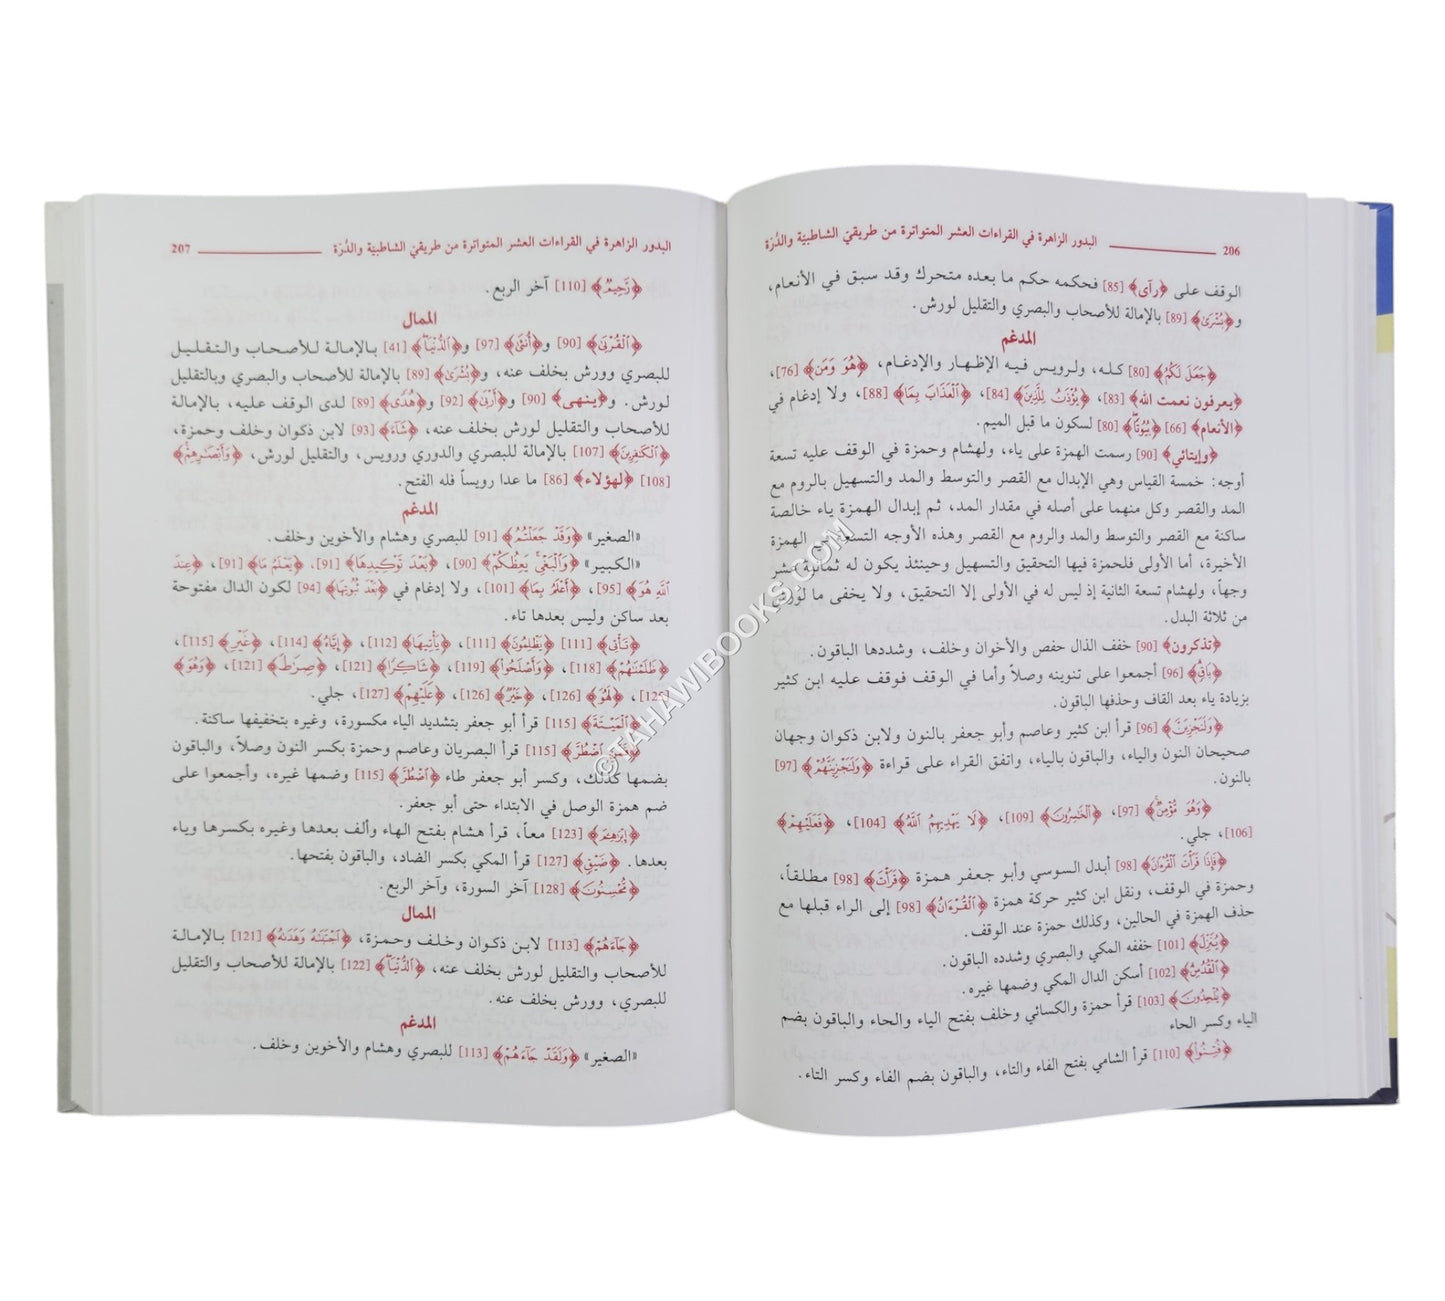 206 البدور الزاهرة في القراءات العشر المتواترة من طريقي الشاطبيّة والدُّرّة
الوقف على ﴿رآى﴾ [85] فحكمه حكم ما بعده متحرك وقد سبق في الأنعام،
و﴿بُشْرَىٰ﴾ [89] بالإمالة للأصحاب والبصري والتقليل لورش.
المدغم
﴿جَعَلَ لَكُمْ﴾ [80] كله، ولرويس فيه الإظهار والإدغام، ﴿هُوَ وَمَن﴾ [76]،
﴿يعرفون نعمت الله﴾ [83]، ﴿يُؤْذَنُ لِلَّذِينَ﴾ [84]، ﴿ٱلْعَذَابَ بِمَا﴾ [88]، ولا إدغام في
﴿الأنعام﴾ [66] ﴿بُيُوتًا﴾ [80] لسكون ما قبل الميم.
﴿وإيتائي﴾ [90] رسمت الهمزة على ياء، ولهشام وحمزة في الوقف عليه تسعة
أوجه: خمسة القياس وهي الإبدال مع القصر والتوسط والمد والتسهيل بالروم مع
المد والقصر وكل منهما على أصله في مقدار المد، ثم إبدال الهمزة ياء خالصة
ساكنة مع القصر والتوسط والمد والروم مع القصر وهذه الأوجه التسعة في الهمزة
الأخيرة، أما الأولى فلحمزة فيها التحقيق والتسهيل وحينئذ يكون له ثمانية عشر
وجهاً، ولهشام تسعة الثانية إذ ليس له في الأولى إلا التحقيق، ولا يخفى ما لورش
من ثلاثة البدل.
﴿تذكرون﴾ [90] خفف الذال حفص والأخوان وخلف، وشددها الباقون.
﴿بَاقٍ﴾ [96] أجمعوا على تنوينه وصلاً وأما في الوقف فوقف عليه ابن كثير
بزيادة ياء بعد القاف وحذفها الباقون.
﴿وَلَنَجْزِيَنَّ﴾ [96] قرأ ابن كثير وعاصم وأبو جعفر بالنون ولابن ذكوان وجهان
صحيحان النون والياء، والباقون بالياء، واتفق القراء على قراءة ﴿وَلَنَجْزِيَنَّهُمْ﴾ [97]
بالنون.
﴿وَهُوَ مُؤْمِنٌ﴾ [97]، ﴿ٱلْخَٰسِرُونَ﴾ [109]، ﴿لَا يَهْدِيهِمُ ٱللَّهُ﴾ [104]، ﴿فَعَلَيْهِمْ﴾
[106]، جلي.
﴿فَإِذَا قَرَأْتَ ٱلْقُرْءَانَ﴾ [98] أبدل السوسي وأبو جعفر همزة ﴿قَرَأْتَ﴾ [98] مطلقاً،
وحمزة في الوقف، ونقل ابن كثير حركة همزة ﴿ٱلْقُرْءَانَ﴾ [98] إلى الراء قبلها مع
حذف الهمزة في الحالين، وكذلك حمزة عند الوقف.
﴿يُنَزِّلُ﴾ [101] خففه المكي والبصري وشدده الباقون.
﴿ٱلْقُدُسِ﴾ [102] أسكن الدال المكي وضمها غيره.
﴿يُلْحِدُونَ﴾ [103] قرأ حمزة والكسائي وخلف بفتح الياء والحاء والباقون بضم
الياء وكسر الحاء
﴿فُتِنُوا۟﴾ [110] قرأ الشامي بفتح الفاء والتاء، والباقون بضم الفاء وكسر التاء.
البدور الزاهرة في القراءات العشر المتواترة من طريقي الشاطبيّة والدُّرّة 207
﴿رَّحِيمٌ﴾ [110] آخر الربع.
الممال
﴿ٱلْقُرْبَىٰ﴾ [90] و﴿أُنثَىٰ﴾ [97] و﴿ٱلدُّنْيَا﴾ [41] بالإمالة للأصحاب والتقليل
للبصري وورش بخلف عنه، و﴿بُشْرَىٰ﴾ [89] بالإمالة للأصحاب والبصري وبالتقليل
لورش. و﴿ينهى﴾ [90] و﴿أَرْبَىٰ﴾ [92] و﴿هُدًى﴾ [89] لدى الوقف عليه، بالإمالة
للأصحاب والتقليل لورش بخلف عنه، ﴿شَآءَ﴾ [93] لابن ذكوان وخلف وحمزة،
﴿ٱلْكَٰفِرِينَ﴾ [107] بالإمالة للبصري والدوري ورويس، والتقليل لورش، ﴿وَأَبْصَٰرِهِمْ﴾
[108] ﴿لهؤلاء﴾ [86] ما عدا رويساً فله الفتح.
المدغم
«الصغير» ﴿وَقَدْ جَعَلْتُمُ﴾ [91] للبصري وهشام والأخوين وخلف.
«الكبير» ﴿وَٱلْبَغْىِ يَعِظُكُمْ﴾ [90]، ﴿بَعْدَ تَوْكِيدِهَا﴾ [91]، ﴿يَعْلَمُ مَا﴾ [91]، ﴿عِندَ
ٱللَّهِ هُوَ﴾ [95]، ﴿أَعْلَمُ بِمَا﴾ [101]، ولا إدغام في ﴿بَعْدَ ثُبُوتِهَا﴾ [94] لكون الدال مفتوحة
بعد ساكن وليس بعدها تاء.
﴿تَأْتِى﴾ [111] ﴿يُظْلَمُونَ﴾ [111]، ﴿يَأْتِيهَا﴾ [112]، ﴿إِيَّاهُ﴾ [114]، ﴿غَيْرَ﴾ [115]،
﴿ظَلَمْنَٰهُمْ﴾ [118]، ﴿وَأَصْلَحُوٓا۟﴾ [119]، ﴿شَاكِرًا﴾ [121]، ﴿صِرَٰطٍ﴾ [121]، ﴿وَهُوَ﴾
[125]، ﴿لَهُوَ﴾ [126]، ﴿خَيْرٌ﴾ [126]، ﴿عَلَيْهِمْ﴾ [127]، جلي.
﴿ٱلْمَيْتَةَ﴾ [115] قرأ أبو جعفر بتشديد الياء مكسورة، وغيره بتخفيفها ساكنة.
﴿فَمَنِ ٱضْطُرَّ﴾ [115] قرأ البصريان وعاصم وحمزة بكسر النون وصلاً، والباقون
بضمها كذلك، وكسر أبو جعفر طاء ﴿ٱضْطُرَّ﴾ [115] وضمها غيره، وأجمعوا على
ضم همزة الوصل في الابتداء حتى أبو جعفر.
﴿إِبْرَٰهِيمَ﴾ [123] معاً، قرأ هشام بفتح الهاء وألف بعدها وغيره بكسرها وياء
بعدها. ﴿ضَيْقٍ﴾ [127] قرأ المكي بكسر الضاد، والباقون بفتحها.
﴿تُحْسِنُونَ﴾ [128] آخر السورة، وآخر الربع.
الممال
﴿جَآءَهُمْ﴾ [113] لابن ذكوان وخلف وحمزة، ﴿ٱجْتَبَىٰهُ وَهَدَىٰهُ﴾ [121] بالإمالة
للأصحاب والتقليل لورش بخلف عنه، ﴿ٱلدُّنْيَا﴾ [122] بالإمالة للأصحاب والتقليل
للبصري، وورش بخلف عنه.
المدغم
«الصغير» ﴿وَلَقَدْ جَآءَهُمْ﴾ [113] للبصري وهشام والأخوين وخلف.
©TAHAWIBOOKS.COM